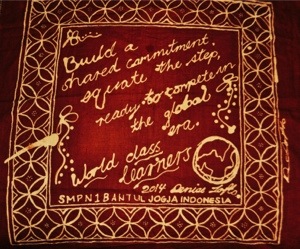 Build a
shared commitment.
equate the step,
ready to compete in
the global
era.
World class
learners
2014 Denise
SMPN 1 BANTUL JOGJA INDONESIA